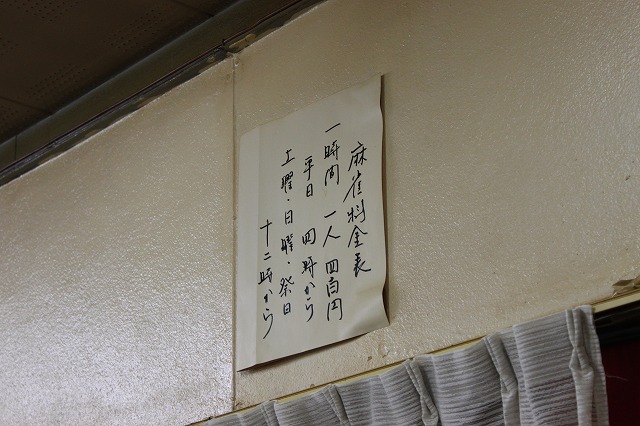 麻雀料金表
一時間 一人 四百円
平日 四時から
土曜・日曜・祭日
十二時から